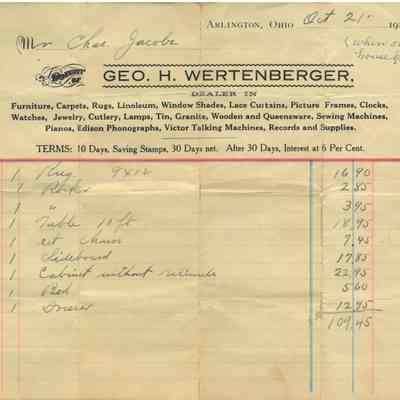 ARLINGTON, OHIO Oct 21 19
Mr Chas. Jacobs
(when
house
BOUGHT OF
GEO. H. WERTENBERGER,
DEALER IN
Furniture, Carpets, Rugs, Linoleum, Window Shades, Lace Curtains, Picture Frames, Clocks,
Watches, Jewelry, Cutlery, Lamps, Tin, Granite, Wooden and Queensware, Sewing Machines,
Pianos, Edison Phonographs, Victor Talking Machines, Records and Supplies.
TERMS: 10 Days, Saving Stamps, 30 Days net. After 30 Days, Interest at 6 Per Cent.
1 Rug 9x12 16 90
1 Rocker 2 85
1 " 3 95
1 Table 10 ft 18 95
1 set Chairs 7 45
1 Sideboard 17 85
1 Cabinet without 22 95
1 Bed 5 60
1 Dresser 12 95
109,45